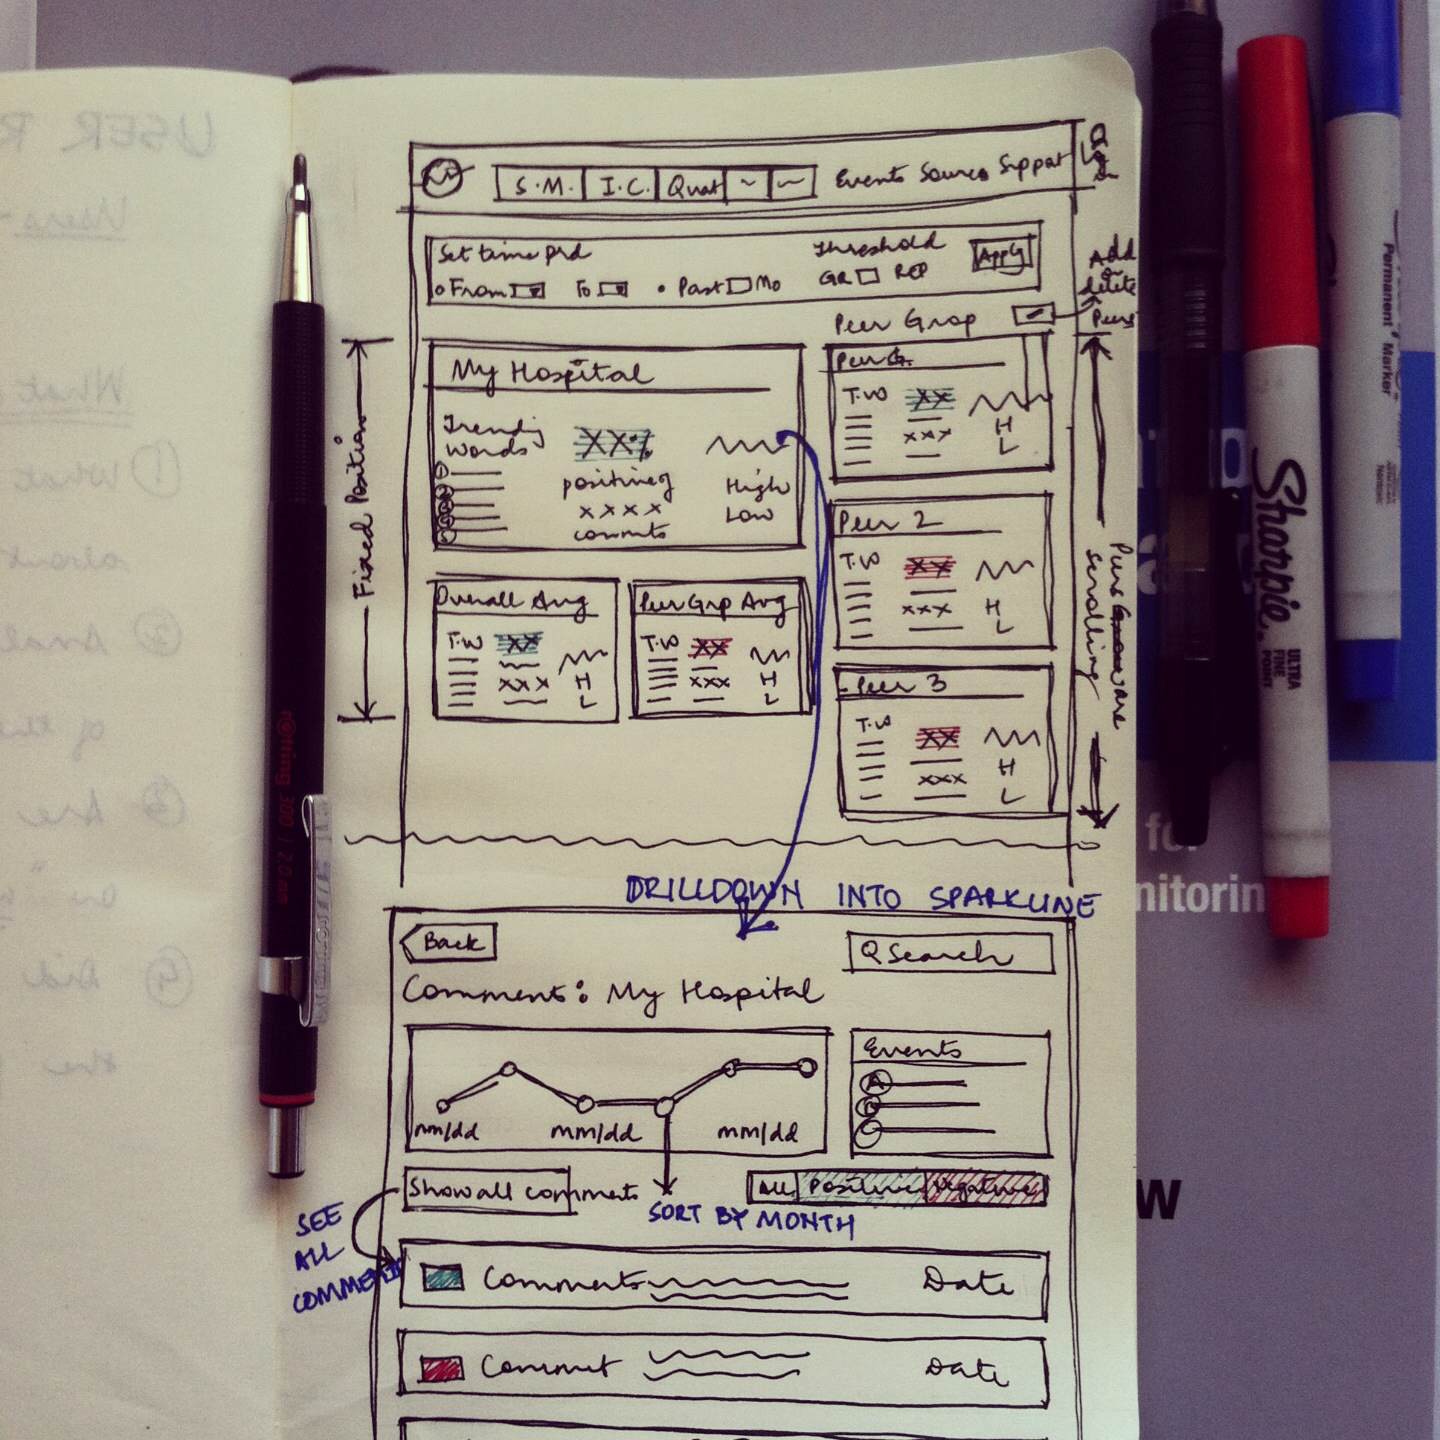 S.M. I.C. Qual Events Source Support
Set time prd
From To Past Mo
Threshold
GR REP
Apply
Add
or
delete
Peers
Peer Grop
My Hospital
Trending
Words
XX%
positive
xxxx
commts
High
Low
Peer G.
T.W XX
xxx H
L
Peer 2
T.W XX
xxx H
L
Peer 3
T.W XX
xxx H
L
Overall Avg
T.W XX
xxx H
L
Peer Grp Avg
T.W XX
xxx H
L
Fixed Position
scrolling
DRILLDOWN INTO SPARKLINE
Back
Q Search
Comment: My Hospital
mm/dd mm/dd mm/dd
Events
A
Show all comments
All Positive Negative
SORT BY MONTH
SEE
ALL
COMMENTS
Comments Date
Commut Date
USER R
Users-
What
① What
about
② Small
of the
③ Are
④ Did
one
rotring 300 | 2.0mm
Sharpie.
ULTRA
FINE
POINT
Permanent Marker
for
nitorin
w